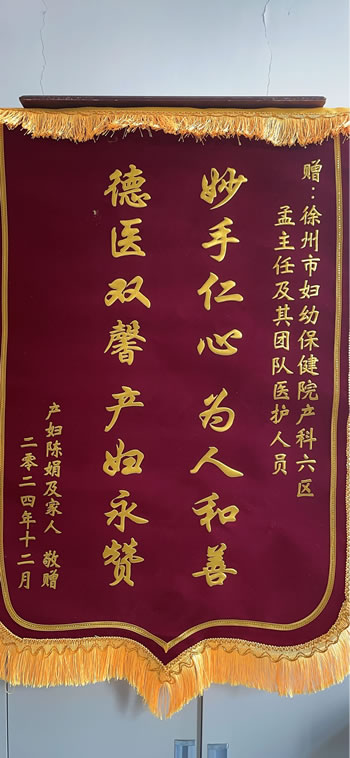 赠：徐州市妇幼保健院产科六区
孟主任及其团队医护人员
妙手仁心 为人和善
德医双馨 产妇永赞
产妇陈娟及家人 敬赠
二零二四年十二月